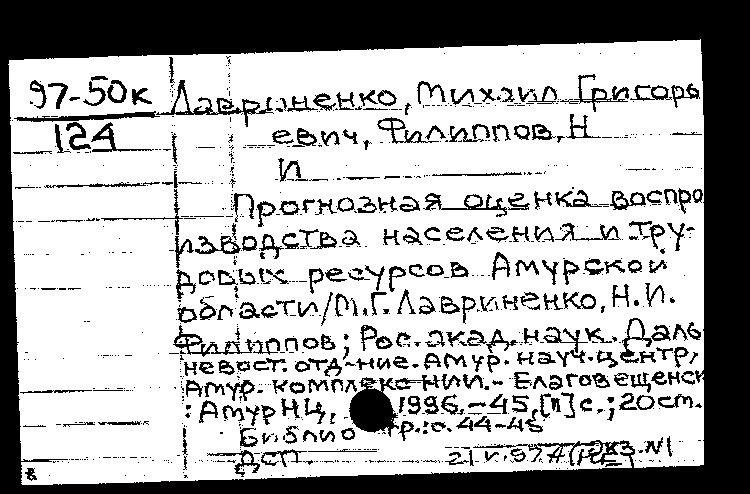 97-50к
124
Лавриненко, Михаил Григорь
евич, Филиппов, Н
И
Прогнозная оценка воспро
изводства населения и тру-
довых ресурсов Амурской
области/М.Г. Лавриненко, Н.И.
Филиппов; Рос. акад. наук. Даль
невост. отд-ние. Амур. науч. центр,
Амур. комплекс НИИ. - Благовещенск
: АмурНЦ, 1996. - 45, [1] с.; 20 см.
Библио р.: с. 44-45
ДСП. экз. N1